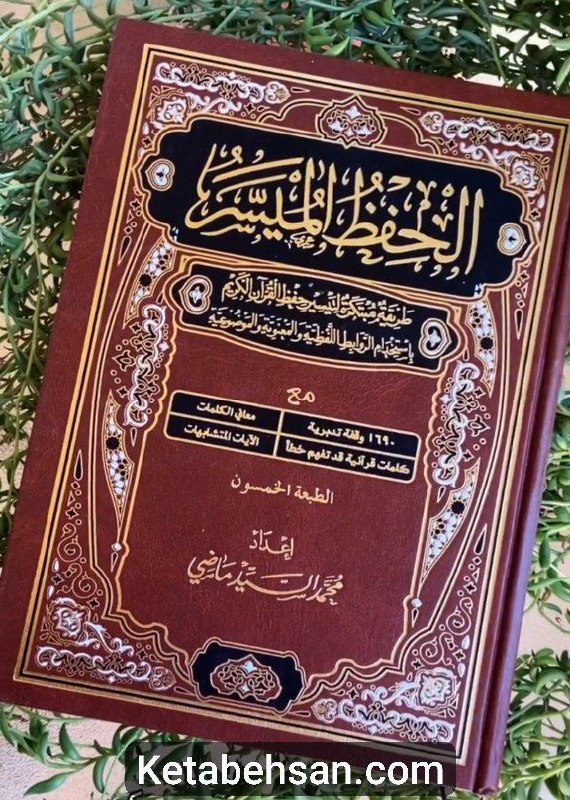 الحفظ الميسر
طريقة مبتكرة لتيسير حفظ القرآن الكريم
باستخدام الروابط اللفظية والمعنوية والموضوعية
مع
١٦٩٠ وقفة تدبرية معاني الكلمات
كلمات قرآنية قد تفهم خطأ الآيات المتشابهات
الطبعة الخمسون
إعداد
محمد السيد ماضي
Ketabehsan.com